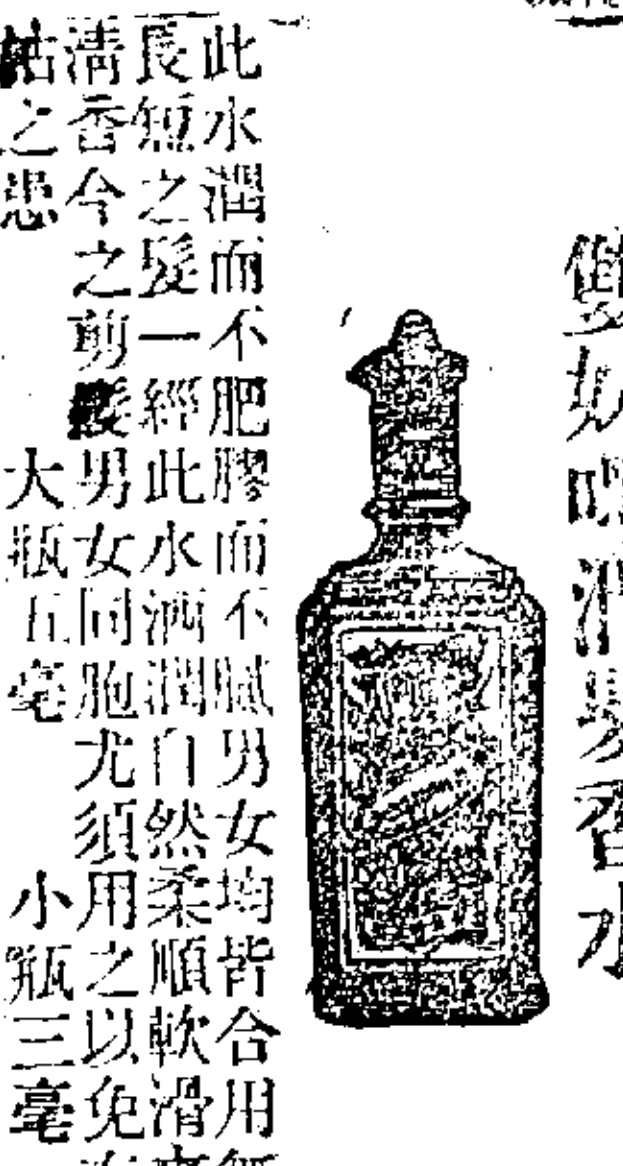 此水潤而不肥膠而不膩男女均皆合用無
長短之髮一經此水洒潤自然柔順軟滑
清香今之剪髮男女同胞尤須用之以免
粘之患 大瓶五毫 小瓶三毫
香水